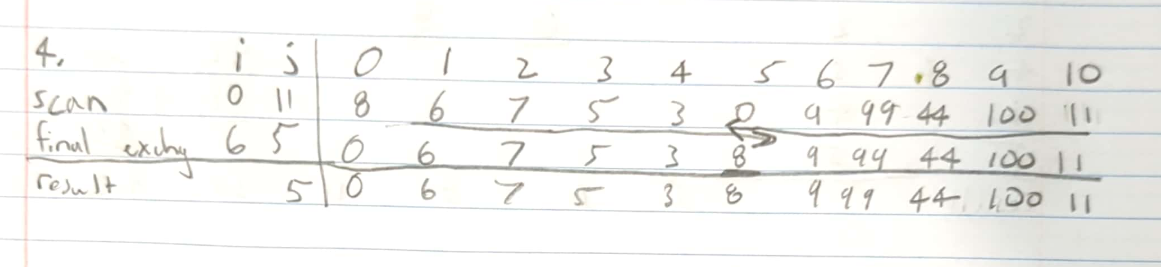 4. i j 0 1 2 3 4 5 6 7 8 9 10
scan 0 11 8 6 7 5 3 0 9 99 44 100 11
final exchg 6 5 0 6 7 5 3 8 9 99 44 100 11
result 5 0 6 7 5 3 8 9 99 44 100 11